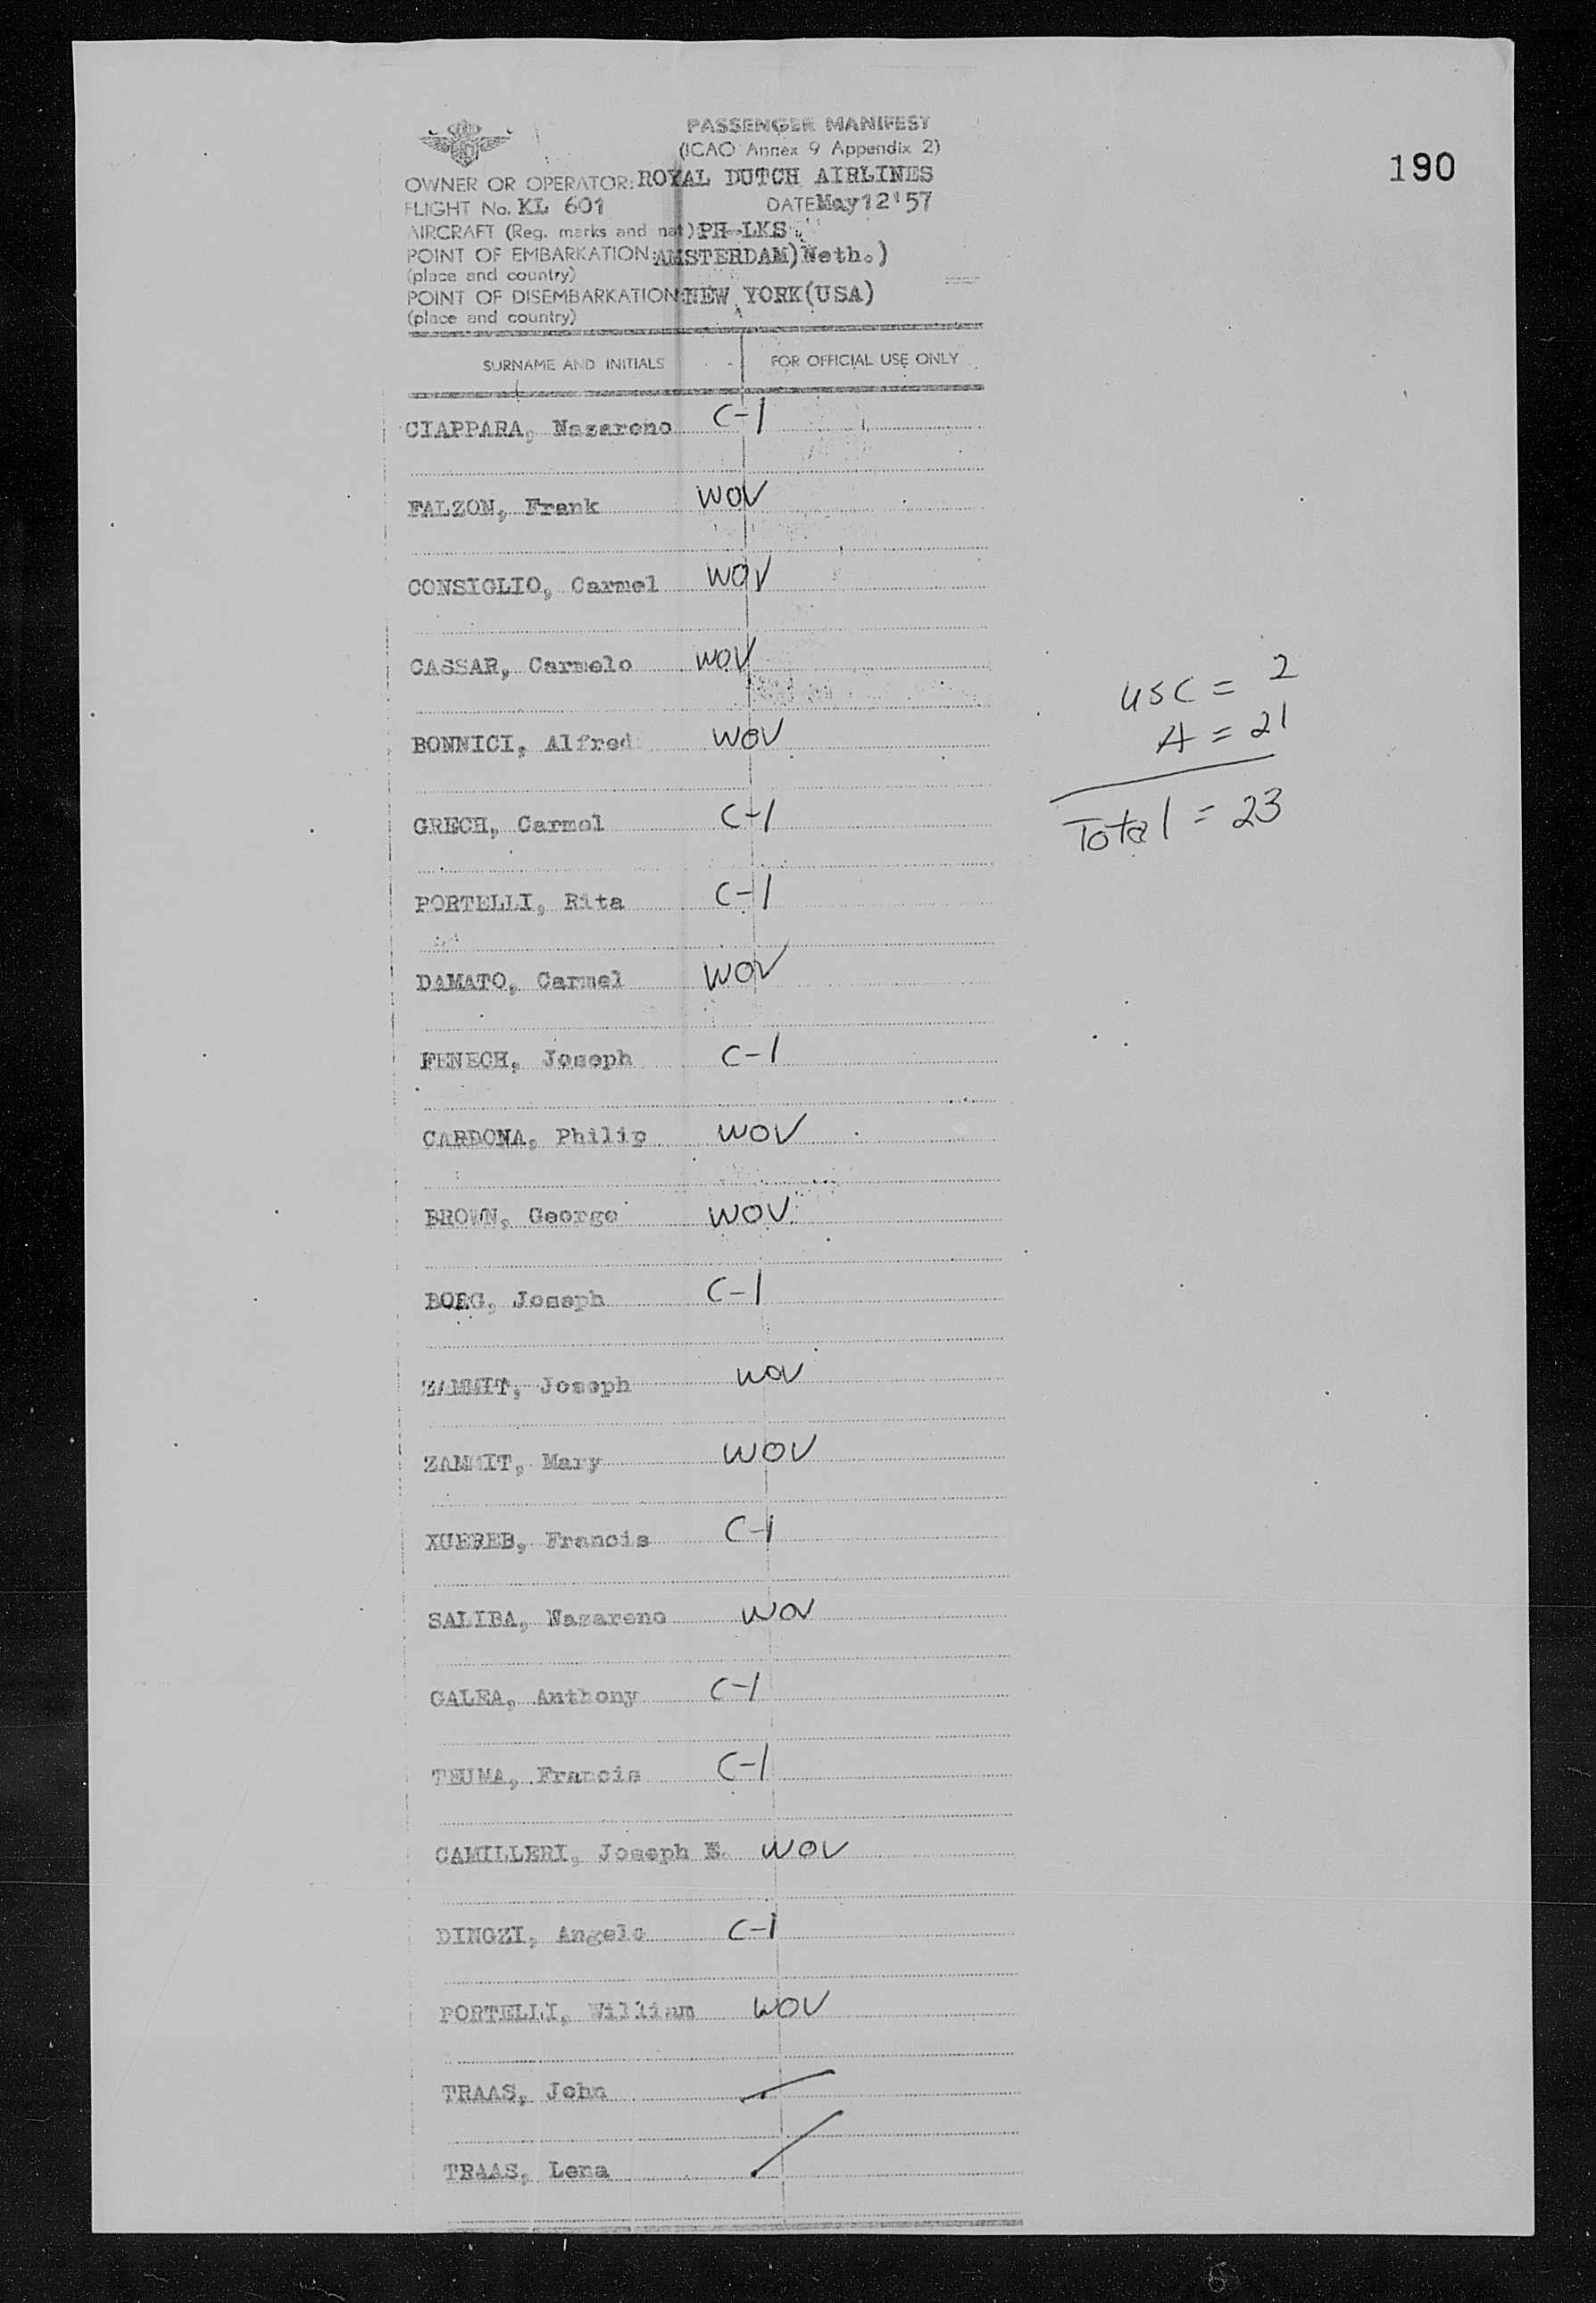 PASSENGER MANIFEST
(ICAO Annex 9 Appendix 2)
190
OWNER OR OPERATOR: ROYAL DUTCH AIRLINES
FLIGHT No. KL 601 DATE May 12 '57
AIRCRAFT (Reg. marks and nat) PH-LKS
POINT OF EMBARKATION: AMSTERDAM)Neth.)
(place and country)
POINT OF DISEMBARKATION: NEW YORK(USA)
(place and country)
SURNAME AND INITIALS FOR OFFICIAL USE ONLY
CIAPPARA, Nazareno C-1
FALZON, Frank WOV
CONSIGLIO, Carmel WOV
CASSAR, Carmelo WOV
USC = 2
A = 21
BONNICI, Alfred WOV
Total = 23
GRECH, Carmel C-1
PORTELLI, Rita C-1
DAMATO, Carmel WOV
FENECH, Joseph C-1
CARDONA, Philip WOV
BROWN, George WOV
BORG, Joseph C-1
ZAMMIT, Joseph WOV
ZAMMIT, Mary WOV
XUEREB, Francis C-1
SALIBA, Nazareno WOV
GALEA, Anthony C-1
TEUMA, Francis C-1
CAMILLERI, Joseph E. WOV
DINGZI, Angelo C-1
PORTELLI, William WOV
TRAAS, John
TRAAS, Lena